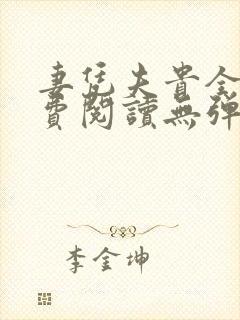 妻凭夫貴全
費閱讀無彈
李金坤